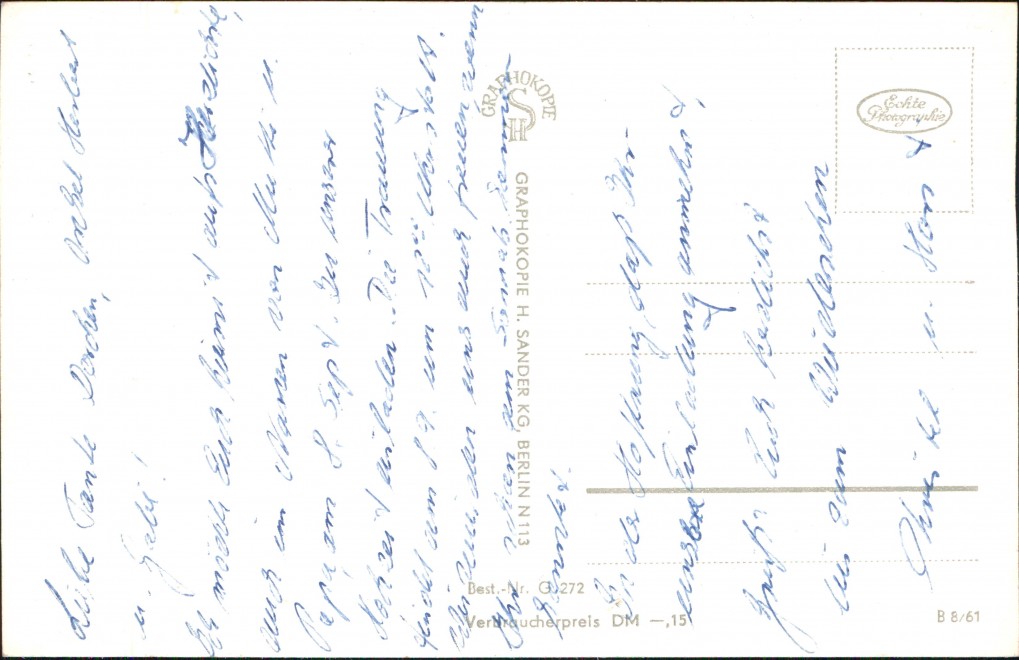 Liebe Tante Dorchen, Onkel Herbert
u. Gabi!
Ich möchte Euch hiermit aufs Herzlichste,
auch im Namen von Mutti u.
Papa, am 8. Sept. zu unserer
Hochzeit einladen. Die Trauung
findet am 8.9. um 10 Uhr statt.
Wir würden uns auch freuen wenn
Ihr schon am kommen
könntet.
In der Hoffnung, daß Ihr
unsere Einladung annehmt,
grüßt Euch herzlichst
bis zum Wiedersehen
Christel u.
GRAPHOKOPIE
H S
GRAPHOKOPIE H. SANDER KG, BERLIN N 113
Echte
Photographie
Best.-Nr. G 272
Verbraucherpreis DM —,15
B 8/61